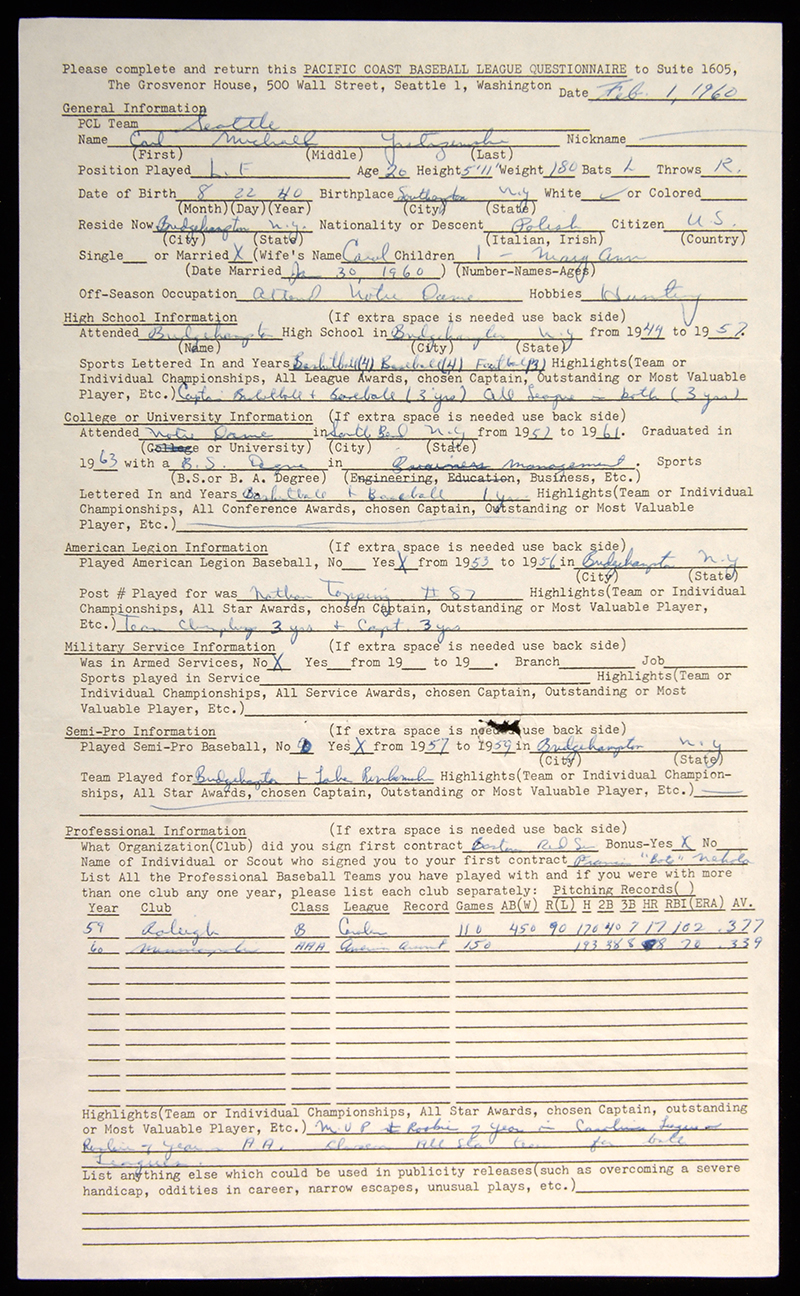 Please complete and return this PACIFIC COAST BASEBALL LEAGUE QUESTIONNAIRE to Suite 1605,
The Grosvenor House, 500 Wall Street, Seattle 1, Washington Date Feb. 1, 1960
General Information
PCL Team Seattle
Name Carl Michael Yastrzemski Nickname
(First) (Middle) (Last)
Position Played L. F Age 20 Height 5'11" Weight 180 Bats L Throws R.
Date of Birth 8 22 40 Birthplace Southampton N.Y White ✓ or Colored
(Month)(Day)(Year) (City) (State)
Reside Now Bridgehampton N.Y. Nationality or Descent Polish Citizen U.S.
(City) (State) (Italian, Irish) (Country)
Single or Married X (Wife's Name Carol Children 1 - Mary Ann
(Date Married Jan 30, 1960 ) (Number-Names-Ages)
Off-Season Occupation Attend Notre Dame Hobbies Hunting
High School Information (If extra space is needed use back side)
Attended Bridgehampton High School in Bridgehampton N.Y from 1949 to 1957.
(Name) (City) (State)
Sports Lettered In and Years Basketball(4) Baseball(4) Football Highlights(Team or
Individual Championships, All League Awards, chosen Captain, Outstanding or Most Valuable
Player, Etc.) Captain Basketball + Baseball (3 yrs) All League in both (3 yrs)
College or University Information (If extra space is needed use back side)
Attended Notre Dame in South Bend from 1957 to 1961. Graduated in
(College or University) (City) (State)
1963 with a B.S. Degree in Business Management. Sports
(B.S.or B. A. Degree) (Engineering, Education, Business, Etc.)
Lettered In and Years Basketball + Baseball 1 yr Highlights(Team or Individual
Championships, All Conference Awards, chosen Captain, Outstanding or Most Valuable
Player, Etc.)
American Legion Information (If extra space is needed use back side)
Played American Legion Baseball, No Yes X from 1953 to 1956 in Bridgehampton N.Y
(City) (State)
Post # Played for was Nathan Topping #87 Highlights(Team or Individual
Championships, All Star Awards, chosen Captain, Outstanding or Most Valuable Player,
Etc.) Team 3 yrs + Capt. 3 yrs
Military Service Information (If extra space is needed use back side)
Was in Armed Services, No X Yes from 19 to 19 . Branch Job
Sports played in Service Highlights(Team or
Individual Championships, All Service Awards, chosen Captain, Outstanding or Most
Valuable Player, Etc.)
Semi-Pro Information (If extra space is needed use back side)
Played Semi-Pro Baseball, No Yes X from 1957 to 1959 in Bridgehampton N.Y
(City) (State)
Team Played for Bridgehampton + Lake Ronkonkoma Highlights(Team or Individual Champion-
ships, All Star Awards, chosen Captain, Outstanding or Most Valuable Player, Etc.)
Professional Information (If extra space is needed use back side)
What Organization(Club) did you sign first contract Boston Red Sox Bonus-Yes X No
Name of Individual or Scout who signed you to your first contract "Bots" Nekola
List All the Professional Baseball Teams you have played with and if you were with more
than one club any one year, please list each club separately: Pitching Records( )
Year Club Class League Record Games AB(W) R(L) H 2B 3B HR RBI(ERA) AV.
59 Raleigh B Carolina 110 450 90 170 40 7 17 102 .377
60 Minneapolis AAA American Assoc 150 193 38 8 8 70 .339
Highlights(Team or Individual Championships, All Star Awards, chosen Captain, outstanding
or Most Valuable Player, Etc.) M.V.P + Rookie of Year in Carolina League
Rookie of Year in A.A. Chosen All Star team for both
Leagues.
List anything else which could be used in publicity releases(such as overcoming a severe
handicap, oddities in career, narrow escapes, unusual plays, etc.)